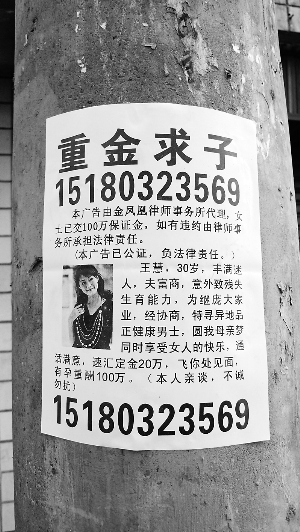 重金求子
15180323569
本广告由金凤凰律师事务所代理，女
士已交100万保证金，如有违约由律师事
务所承担法律责任。
（本广告已公证，负法律责任。）
王慧，30岁，丰满迷
人，夫富商，意外致残失
生育能力，为继庞大家
业，经协商，特寻异地品
正健康男士，圆我母亲梦
同时享受女人的快乐，通
话满意，速汇定金20万，飞你处见面，
有孕重酬100万。（本人亲谈，不诚
勿扰）
15180323569